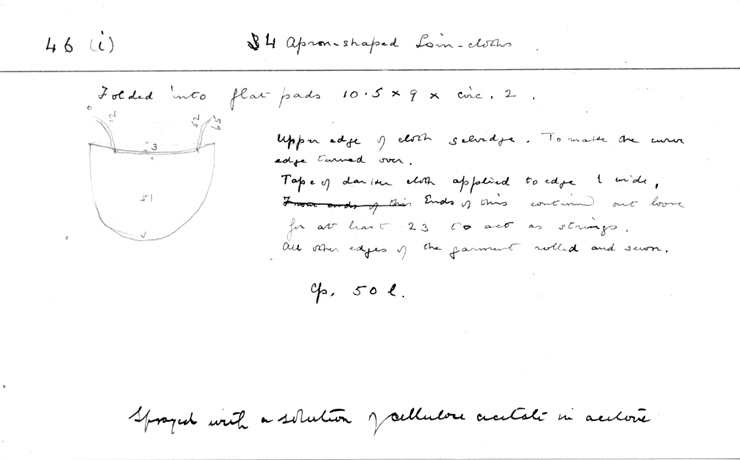 46 (i) 34 Apron-shaped Loin-cloths.
Folded into flat pads 10.5 x 9 x circ. 2.
3
51
Upper edge of cloth selvedge. To make the curve
edge turned over.
Tape of darker cloth applied to edge 1 wide,
Ends of this continued out loose
for at least 23 to act as strings.
All other edges of the garment rolled and sewn.
Cp. 50 l.
Sprayed with a solution of cellulose acetate in acetone